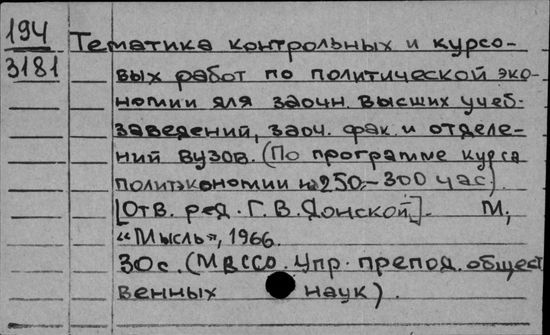 194 Тематика контрольных и курсо-
3181 вых работ по политической эко-
номии для заочн. высших учеб.
заведений, заоч. фак. и отделе-
ний вузов. (По программе курса
политэкономии на 250-300 час)
[Отв. ред. Г. В. Донской]. М.,
"Мысль", 1966.
30 с. (МВССО. Упр. препод. общест
венных наук).